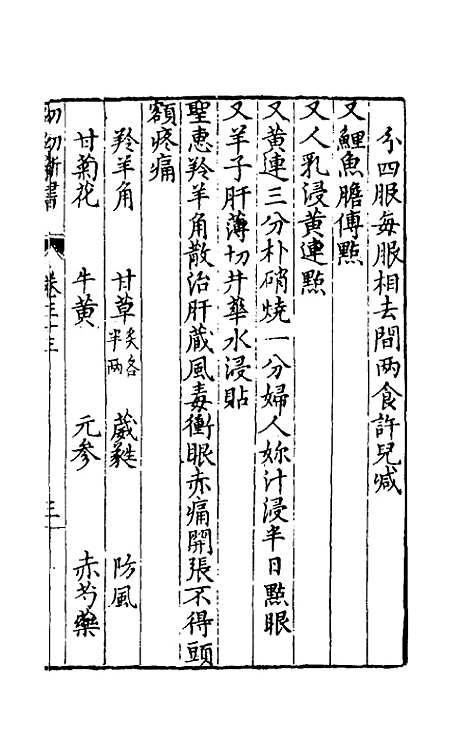 分四服每服相去間两食許兒喊
又鯉魚膽傅點
又人乳浸黄連點
又黄連三分朴硝燒一分婦人妳汁浸半日點眼
又羊子肝薄切井華水浸貼
聖惠羚羊角散治肝藏風毒衝眼赤痛開張不得頭
額疼痛
羚羊角 甘草炙各半两 葳蕤 防風
甘菊花 牛黄 元参 赤芍藥
幼幼新書 卷三十三 三